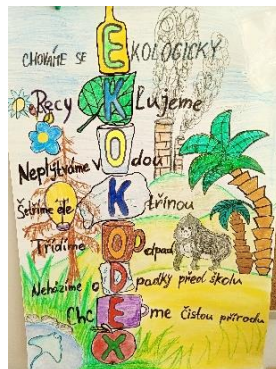 CHOVÁME SE EKOLOGICKY
ReCyKLujeme
Neplýtváme vOdou
Šetříme eleKtřinou
Třídíme Odpad
Neházíme oDpadky před školu
ChcEme čistou přírodu
X